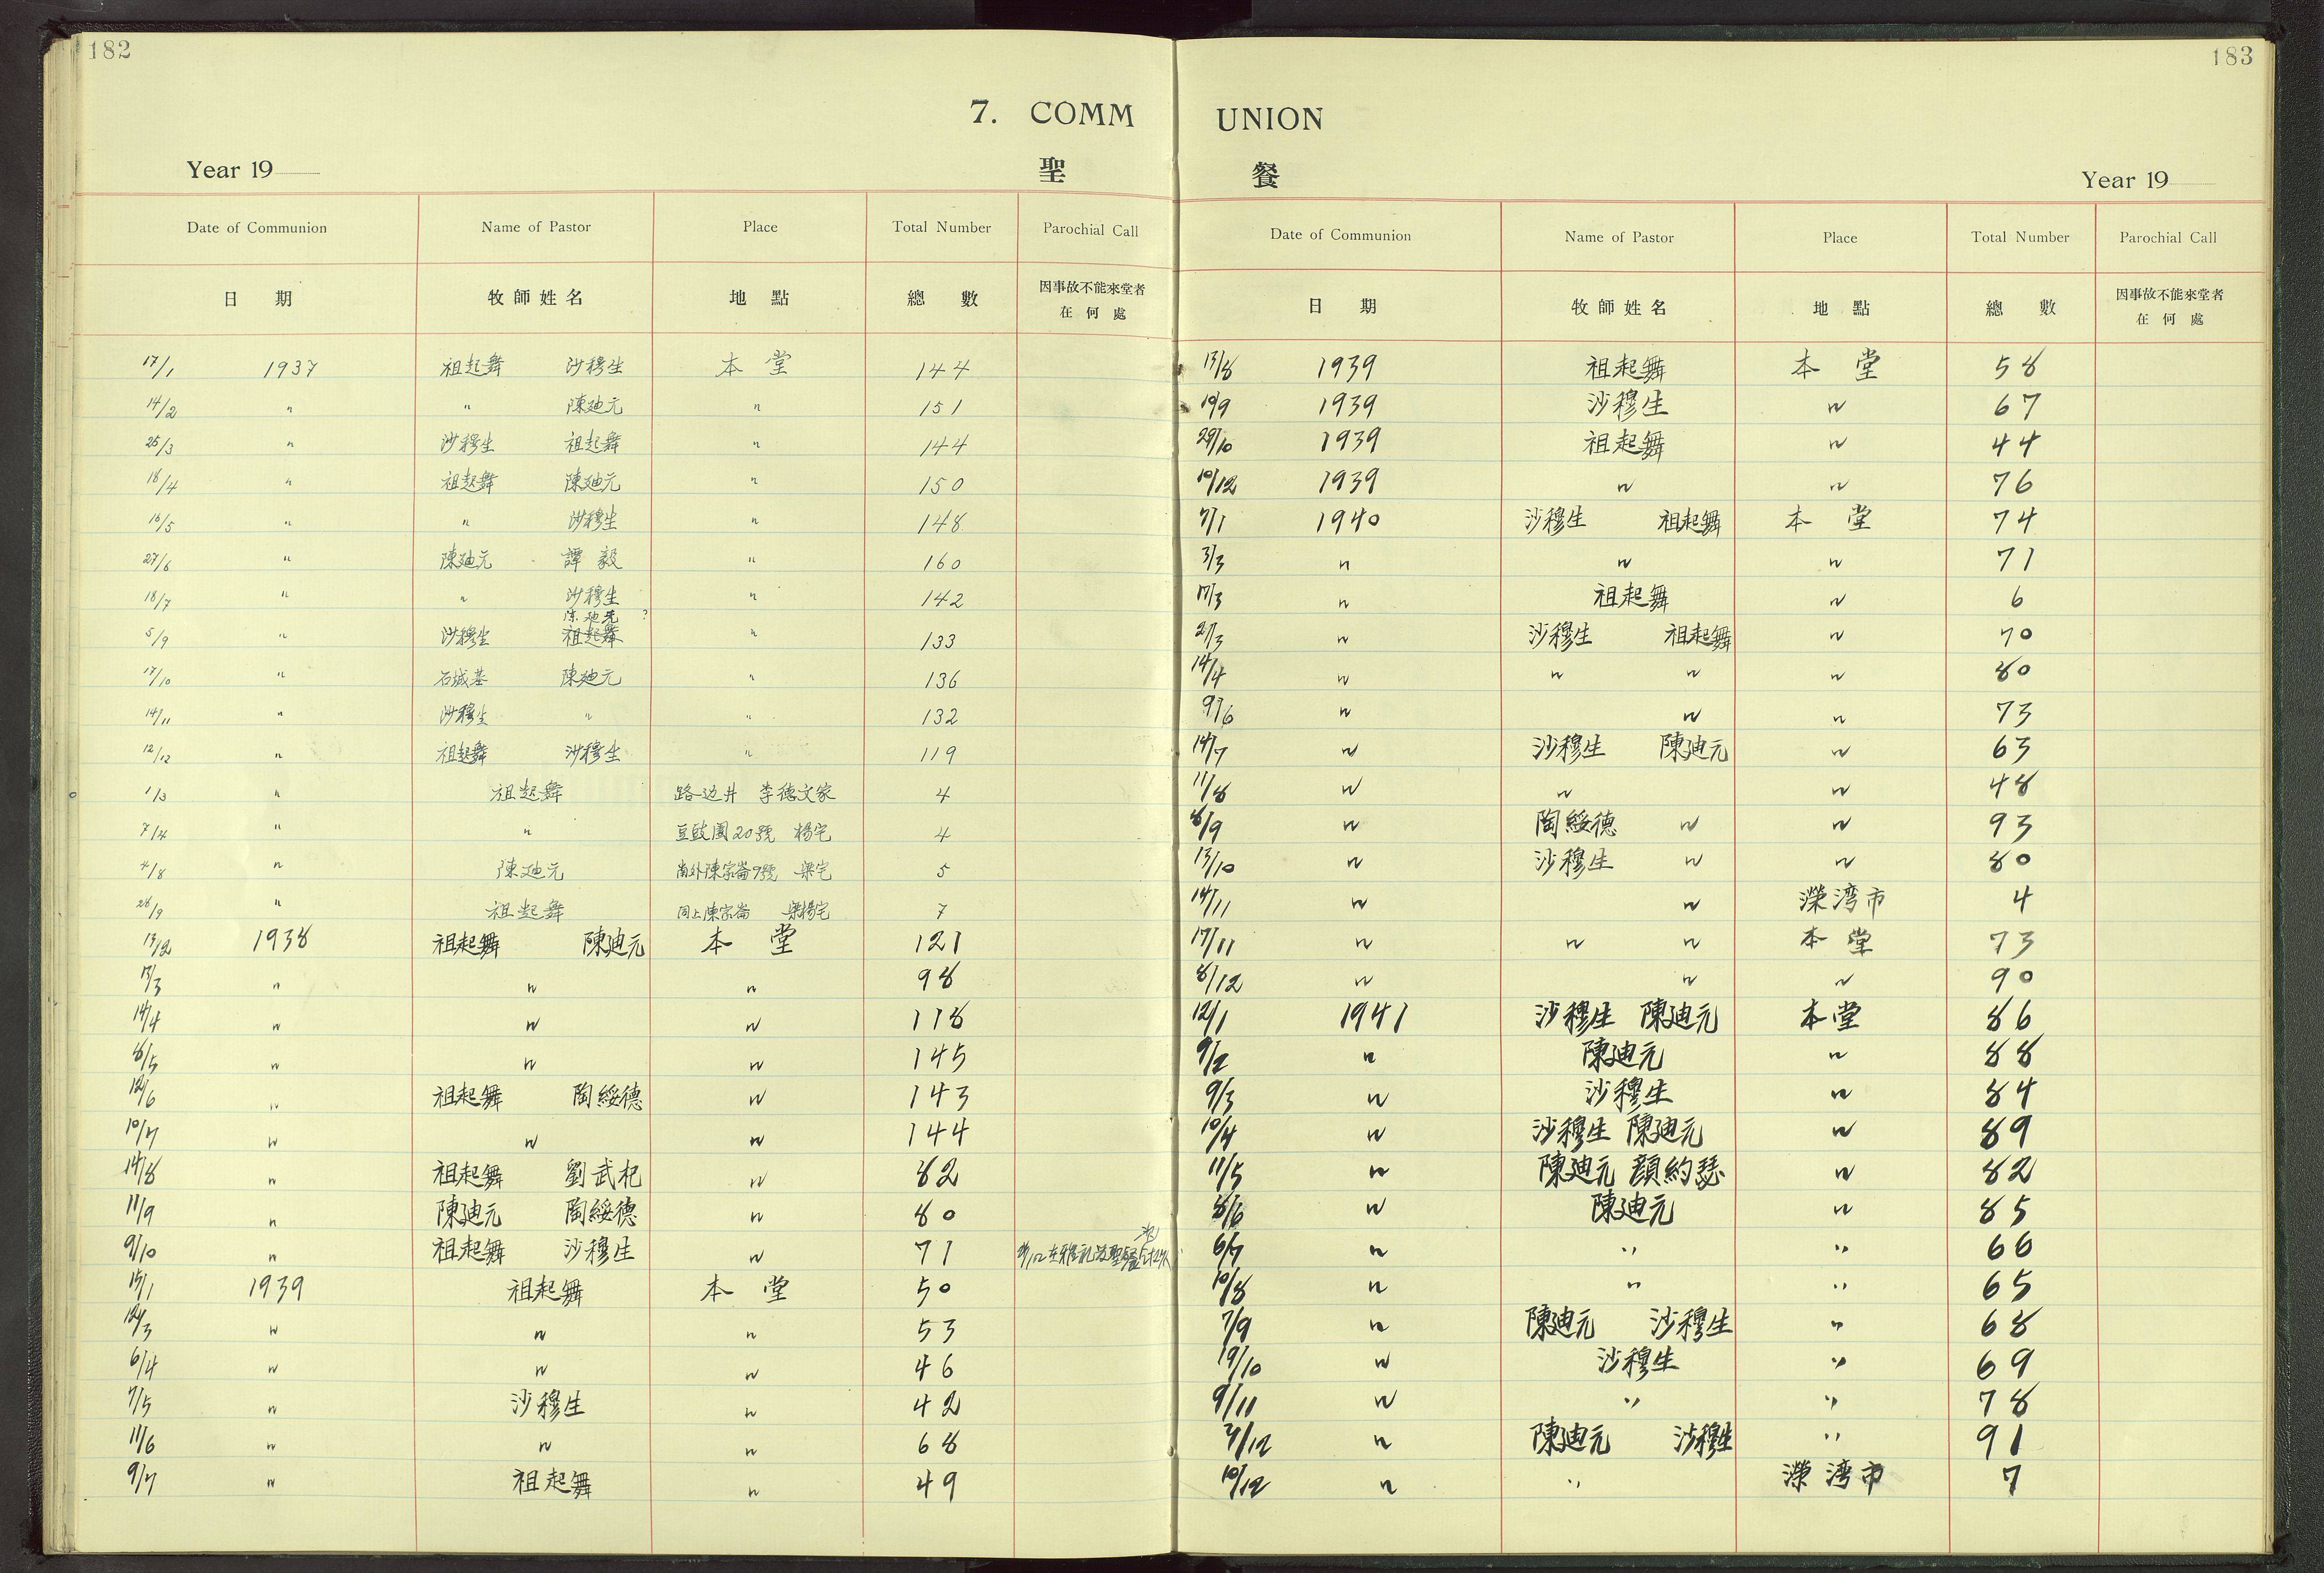 182
7. COMM
Year 19
聖
Date of Communion Name of Pastor Place Total Number Parochial Call
日期 牧師姓名 地點 總數 因事故不能來堂者
在何處
17/1 1937 祖起舞 沙穆生 本堂 144
14/2 〃 〃 陳廸元 〃 151
25/3 〃 沙穆生 祖起舞 〃 144
18/4 〃 祖起舞 陳廸元 〃 150
16/5 〃 〃 沙穆生 〃 148
27/6 〃 陳廸元 譚毅 〃 160
18/7 〃 〃 沙穆生 〃 142
陳廸元 ?
5/9 〃 沙穆生 祖起舞 〃 133
17/10 〃 石城基 陳廸元 〃 136
14/11 〃 沙穆生 〃 〃 132
12/12 〃 祖起舞 沙穆生 〃 119
1/3 〃 祖起舞 路边井 李德文家 4
7/4 〃 〃 豆豉園20號 楊宅 4
4/8 〃 陳廸元 南外陳家崙9號 梁宅 5
26/9 〃 祖起舞 同上陳家崙 梁楊宅 7
13/2 1938 祖起舞 陳廸元 本堂 121
13/3 〃 〃 〃 98
14/4 〃 〃 〃 118
8/5 〃 〃 〃 145
12/6 〃 祖起舞 陶綏德 〃 143
10/7 〃 〃 〃 144
14/8 〃 祖起舞 劉武杞 〃 82
11/9 〃 陳廸元 陶綏德 〃 80
9/10 〃 祖起舞 沙穆生 〃 71
15/1 1939 祖起舞 本堂 50
12/3 〃 〃 〃 53
6/4 〃 〃 〃 46
7/5 〃 沙穆生 〃 42
11/6 〃 〃 〃 68
9/7 〃 祖起舞 〃 49
183
UNION
餐
Year 19
Date of Communion Name of Pastor Place Total Number Parochial Call
日期 牧師姓名 地點 總數 因事故不能來堂者
在何處
13/8 1939 祖起舞 本堂 58
10/9 1939 沙穆生 〃 67
29/10 1939 祖起舞 〃 44
10/12 1939 〃 〃 76
7/1 1940 沙穆生 祖起舞 本堂 74
3/3 〃 〃 〃 71
17/3 〃 祖起舞 〃 6
21/3 〃 沙穆生 祖起舞 〃 70
14/4 〃 〃 〃 〃 80
9/6 〃 〃 〃 73
14/7 〃 沙穆生 陳廸元 〃 63
11/8 〃 〃 〃 48
8/9 〃 陶綏德 〃 〃 93
13/10 〃 沙穆生 〃 〃 80
14/11 〃 〃 濚湾市 4
17/11 〃 〃 〃 本堂 73
8/12 〃 〃 〃 90
12/1 1941 沙穆生 陳廸元 本堂 86
9/2 〃 陳廸元 〃 88
9/3 〃 沙穆生 〃 84
10/4 〃 沙穆生 陳廸元 〃 89
11/5 〃 陳廸元 顏約瑟 〃 82
8/6 〃 陳廸元 〃 85
6/7 〃 〃 〃 66
10/8 〃 〃 〃 65
7/9 〃 陳廸元 沙穆生 〃 68
19/10 〃 沙穆生 〃 69
9/11 〃 〃 〃 78
7/12 〃 陳廸元 沙穆生 〃 91
10/12 〃 〃 濚湾市 7